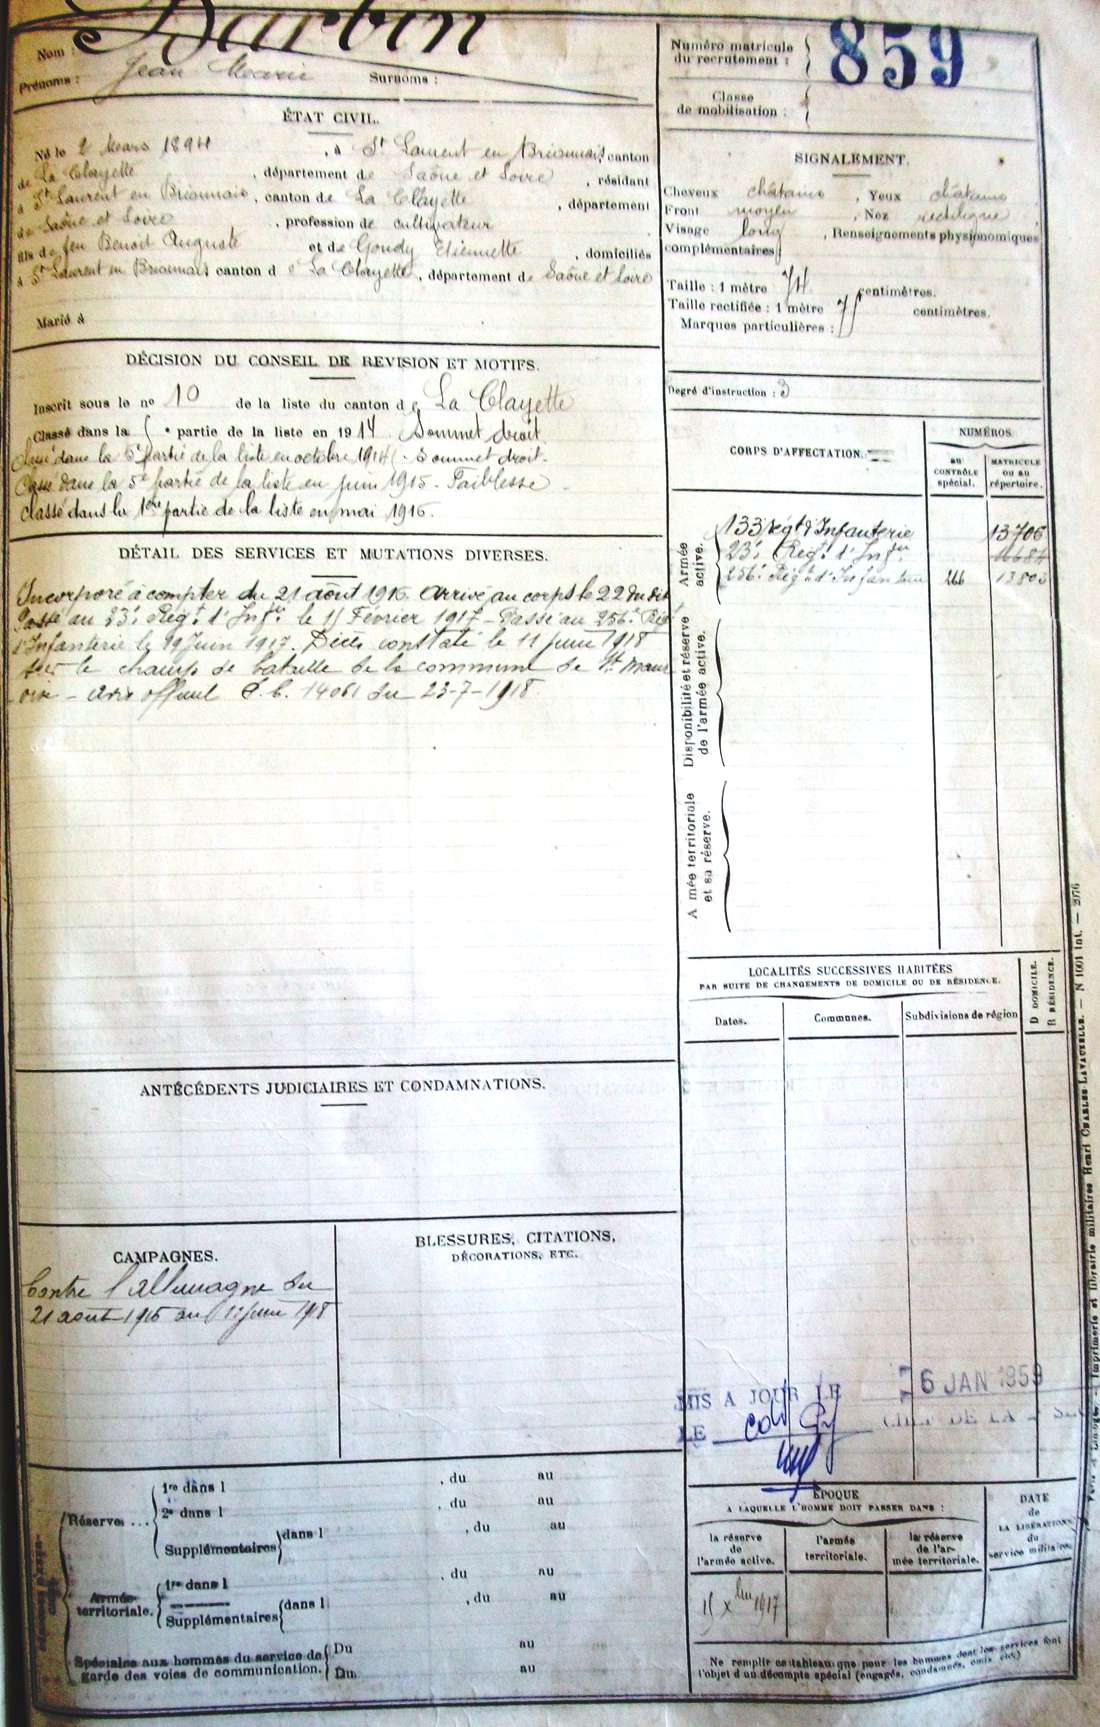 Nom : Barbin
Prénoms : Jean Marie Surnoms :
ÉTAT CIVIL.
Né le 2 Mars 1894, à St Laurent en Brionnais, canton
de La Clayette, département de Saône et Loire, résidant
à St Laurent en Brionnais, canton de La Clayette, département
de Saône et Loire, profession de cultivateur
fils de feu Benoit Auguste et de Goudy Etiennette, domiciliés
à St Laurent en Brionnais canton de La Clayette, département de Saône et Loire
Marié à
DÉCISION DU CONSEIL DE REVISION ET MOTIFS.
Inscrit sous le no 10 de la liste du canton de La Clayette
Classé dans la e partie de la liste en 1914. Sommet droit.
Classé dans la 5e partie de la liste en octobre 1914. Sommet droit.
Classé dans la 5e partie de la liste en juin 1915. Faiblesse
Classé dans la 1ère partie de la liste en mai 1916.
DÉTAIL DES SERVICES ET MUTATIONS DIVERSES.
Incorporé à compter du 21 août 1916. Arrivé au corps le 22 du dit
Passé au 23e Régt d'Infrie le 11 Février 1917 - Passé au 256e Régt
d'Infanterie le 19 Juin 1917. Décès constaté le 11 juin 1918
sur le champ de bataille de la commune de St Maur
- avis officiel 14061 du 23-7-1918.
ANTÉCÉDENTS JUDICIAIRES ET CONDAMNATIONS.
CAMPAGNES.
Contre l'Allemagne du
21 août 1916 au 11 juin 1918
BLESSURES, CITATIONS,
DÉCORATIONS, ETC.
Réserve ...
1re dans l , du au
2e dans l , du au
Supplémentaires dans l , du au
Armée territoriale.
1re dans l , du au
Supplémentaires dans l , du au
Spéciales aux hommes du service de
garde des voies de communication.
Du au
Du au
Numéro matricule
du recrutement : 859
Classe
de mobilisation :
SIGNALEMENT.
Cheveux châtains, Yeux châtains
Front moyen, Nez rectiligne
Visage long, Renseignements physionomiques
complémentaires
Taille : 1 mètre 74 centimètres.
Taille rectifiée : 1 mètre 75 centimètres.
Marques particulières :
Degré d'instruction : 3
CORPS D'AFFECTATION.
NUMÉROS
au
CONTRÔLE
spécial.
MATRICULE
OU AU
répertoire.
Armée
active.
133 régt d'Infanterie 13706
23e Régt d'Infrie
256e Régt d'Infanterie
Disponibilité et réserve
de l'armée active.
A mée territoriale
et sa réserve.
LOCALITÉS SUCCESSIVES HABITÉES
PAR SUITE DE CHANGEMENTS DE DOMICILE OU DE RÉSIDENCE.
D DOMICILE.
R RÉSIDENCE.
Dates. Communes. Subdivisions de région
MIS A JOUR LE 6 JAN 1959
LE CHEF DE LA
ÉPOQUE
A LAQUELLE L'HOMME DOIT PASSER DANS :
DATE
de
LA LIBÉRATION
du
service militaire.
la réserve
de
l'armée active.
l'armée
territoriale.
la réserve
de l'ar-
mée territoriale.
15 Xbre 1917
Ne remplir ce tableau que pour les hommes dont les services font
l'objet d'un décompte spécial (engagés, condamnés, omis etc.)
Imprimerie et librairie militaires Henri CHARLES-LAVAUZELLE. — N 1001 int. — 2176